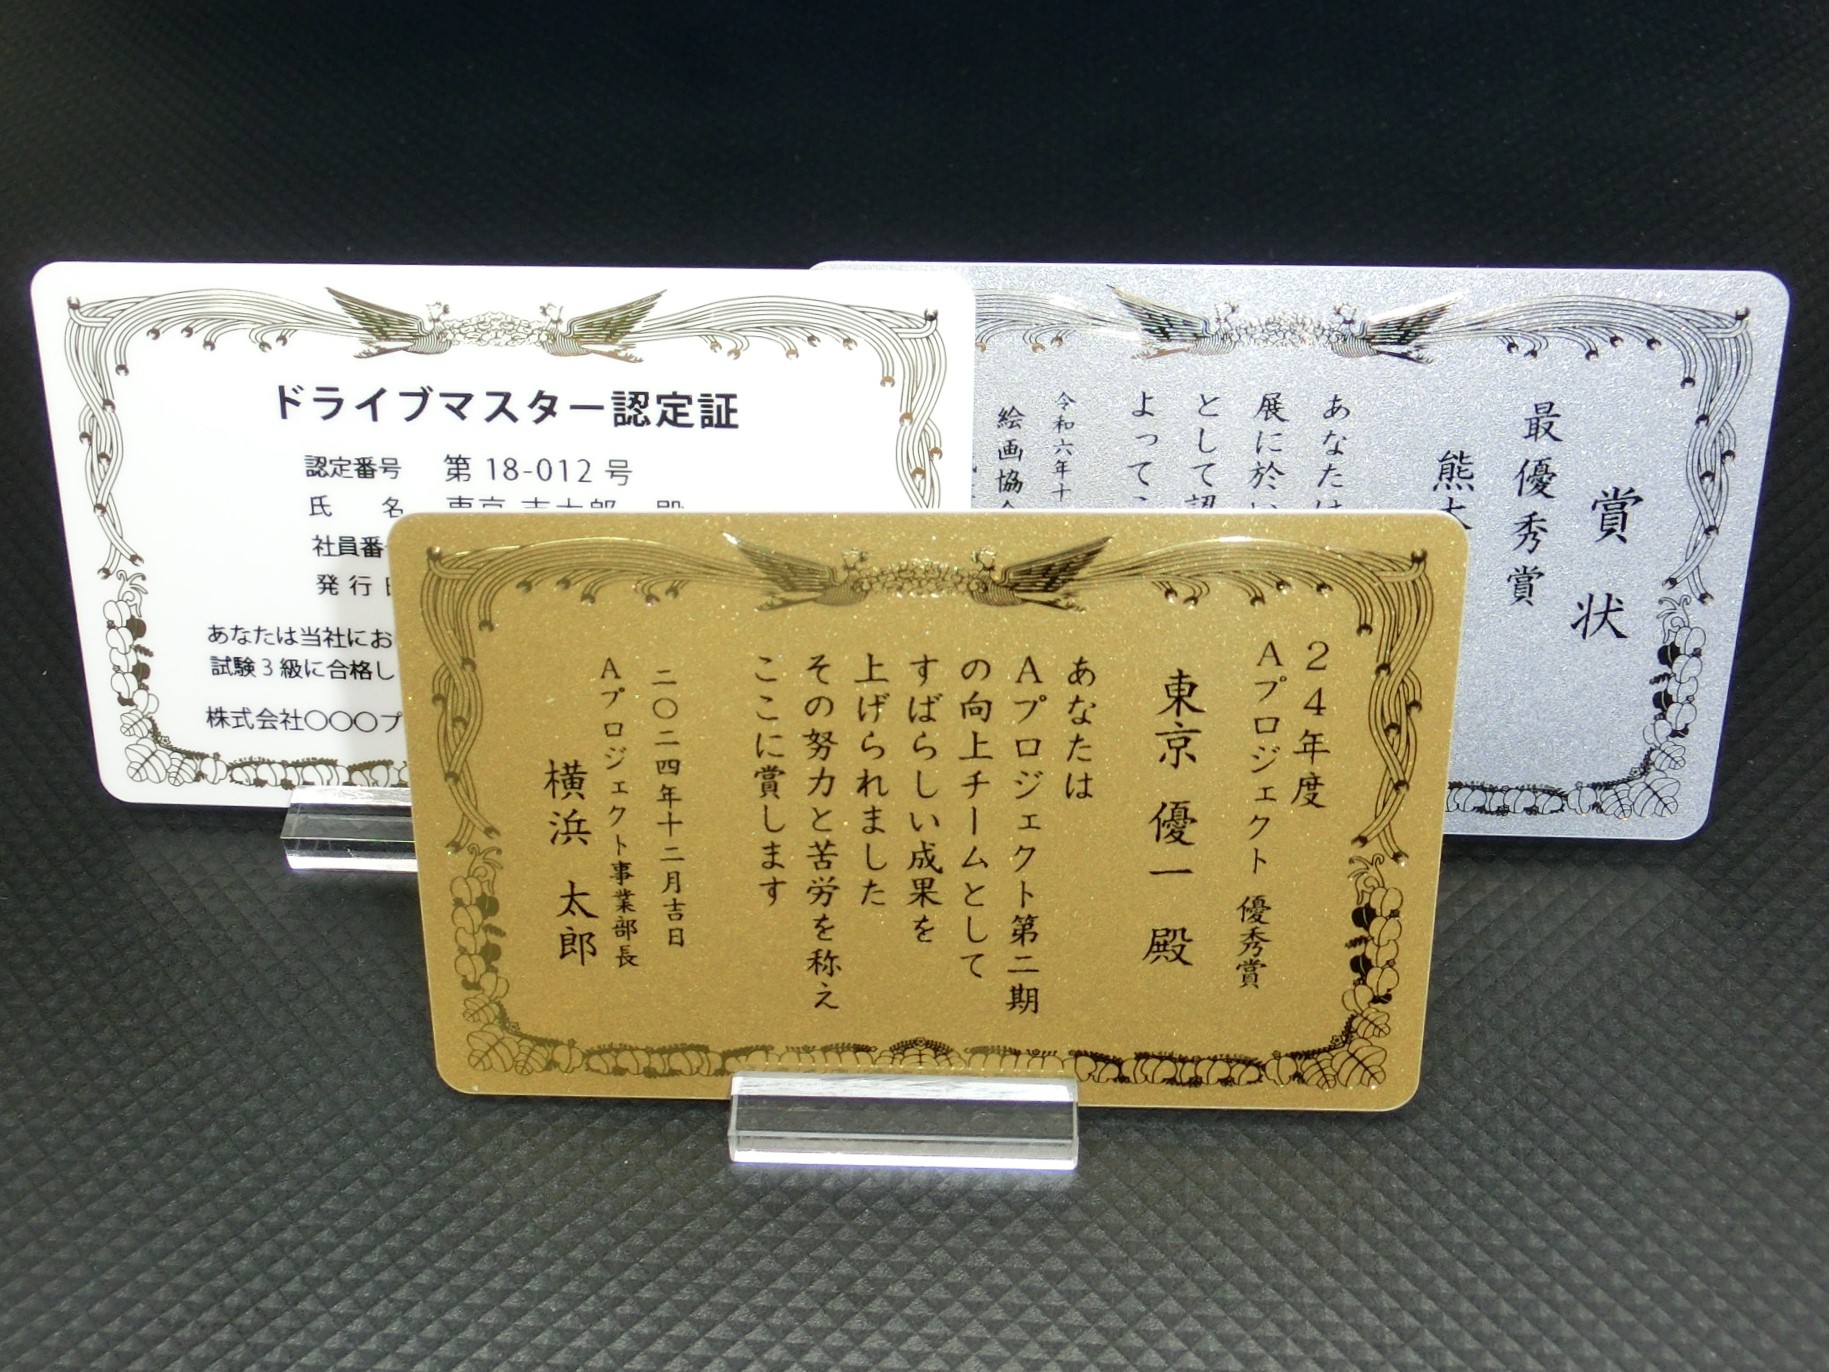 ドライブマスター認定証
認定番号 第 18-012 号
氏 名
社員番
発 行
あなたは当社にお
試験3級に合格し
株式会社〇〇〇プ
賞 状
最優秀賞
熊
あなたは
展に於
として認
よって
令和六年十
絵画協会
24年度
Aプロジェクト 優秀賞
東京 優一 殿
あなたは
Aプロジェクト第二期
の向上チームとして
すばらしい成果を
上げられました
その努力と苦労を称え
ここに賞します
二〇二四年十二月吉日
Aプロジェクト事業部長
横浜 太郎